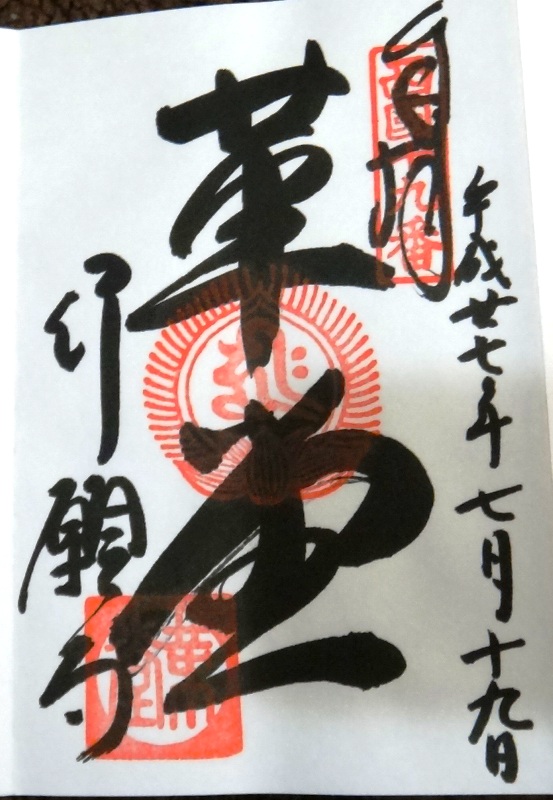 奉拝
西国十九番
平成廿七年七月十九日
革堂
行願寺